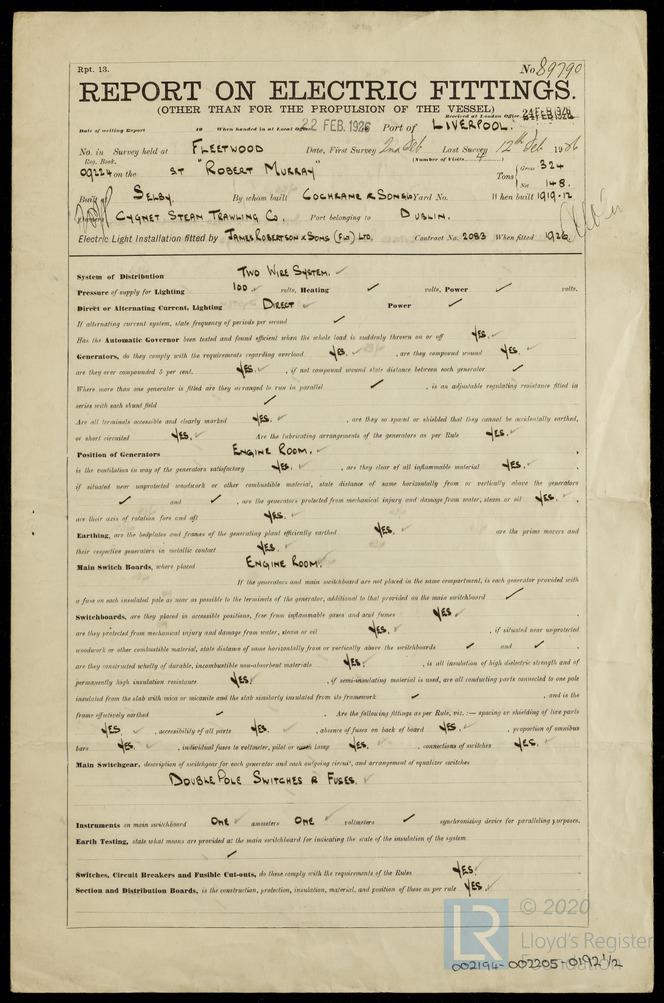 Rpt. 13.
No 89790
REPORT ON ELECTRIC FITTINGS.
(OTHER THAN FOR THE PROPULSION OF THE VESSEL)
Received at London Office 24 FEB 1926
Date of writing Report 19 When handed in at Local Office 22 FEB. 1926 Port of LIVERPOOL.
No. in Survey held at FLEETWOOD Date, First Survey 2nd Feb Last Survey 12th Feb 1926
Reg. Book. (Number of Visits 4)
09224 on the ST "ROBERT MURRAY" Tons { Gross 324
Net 148.
Built at SELBY. By whom built COCHRANE & SONS Ld Yard No. When built 1919-12
Owners CYGNET STEAM TRAWLING CO. Port belonging to DUBLIN.
Electric Light Installation fitted by JAMES ROBERTSON & SONS (FLT) LTD. Contract No. 2083 When fitted 1926
System of Distribution TWO WIRE SYSTEM. ✓
Pressure of supply for Lighting 100 ✓ volts, Heating ✓ volts, Power ✓ volts.
Direct or Alternating Current, Lighting DIRECT ✓ Power ✓
If alternating current system, state frequency of periods per second ✓
Has the Automatic Governor been tested and found efficient when the whole load is suddenly thrown on or off YES. ✓
Generators, do they comply with the requirements regarding overload YES. ✓ , are they compound wound YES. ✓
are they over compounded 5 per cent. YES. ✓ , if not compound wound state distance between each generator ✓
Where more than one generator is fitted are they arranged to run in parallel ✓ , is an adjustable regulating resistance fitted in
series with each shunt field ✓
Are all terminals accessible and clearly marked YES. ✓ , are they so spaced or shielded that they cannot be accidentally earthed,
or short circuited YES. ✓ Are the lubricating arrangements of the generators as per Rule YES. ✓
Position of Generators ENGINE ROOM. ✓
is the ventilation in way of the generators satisfactory YES. ✓ , are they clear of all inflammable material YES. ✓
if situated near unprotected woodwork or other combustible material, state distance of same horizontally from or vertically above the generators
✓ and ✓ , are the generators protected from mechanical injury and damage from water, steam or oil YES. ✓
are their axis of rotation fore and aft YES. ✓
Earthing, are the bedplates and frames of the generating plant efficiently earthed YES. ✓ are the prime movers and
their respective generators in metallic contact YES. ✓
Main Switch Boards, where placed ENGINE ROOM. ✓
If the generators and main switchboard are not placed in the same compartment, is each generator provided with
a fuse on each insulated pole as near as possible to the terminals of the generator, additional to that provided on the main switchboard ✓
Switchboards, are they placed in accessible positions, free from inflammable gases and acid fumes YES ✓
are they protected from mechanical injury and damage from water, steam or oil YES. ✓ , if situated near unprotected
woodwork or other combustible material, state distance of same horizontally from or vertically above the switchboards ✓ and ✓
are they constructed wholly of durable, incombustible non-absorbent materials YES. ✓ , is all insulation of high dielectric strength and of
permanently high insulation resistance YES. ✓ , if semi-insulating material is used, are all conducting parts connected to one pole
insulated from the slab with mica or micanite and the slab similarly insulated from its framework ✓ , and is the
frame effectively earthed ✓ . Are the following fittings as per Rule, viz. :— spacing or shielding of live parts
YES. ✓ , accessibility of all parts YES. ✓ , absence of fuses on back of board YES. ✓ , proportion of omnibus
bars YES. ✓ , individual fuses to voltmeter, pilot or earth lamp YES. ✓ , connections of switches YES. ✓
Main Switchgear, description of switchgear for each generator and each outgoing circuit, and arrangement of equalizer switches
DOUBLE POLE SWITCHES & FUSES. ✓
Instruments on main switchboard ONE ✓ ammeters ONE ✓ voltmeters ✓ synchronising device for paralleling purposes.
Earth Testing, state what means are provided at the main switchboard for indicating the state of the insulation of the system
✓
Switches, Circuit Breakers and Fusible Cut-outs, do these comply with the requirements of the Rules YES. ✓
Section and Distribution Boards, is the construction, protection, insulation, material, and position of these as per rule YES. ✓
LR
© 2020
Lloyd's Register
Foundation
002194-002205-0192 1/2